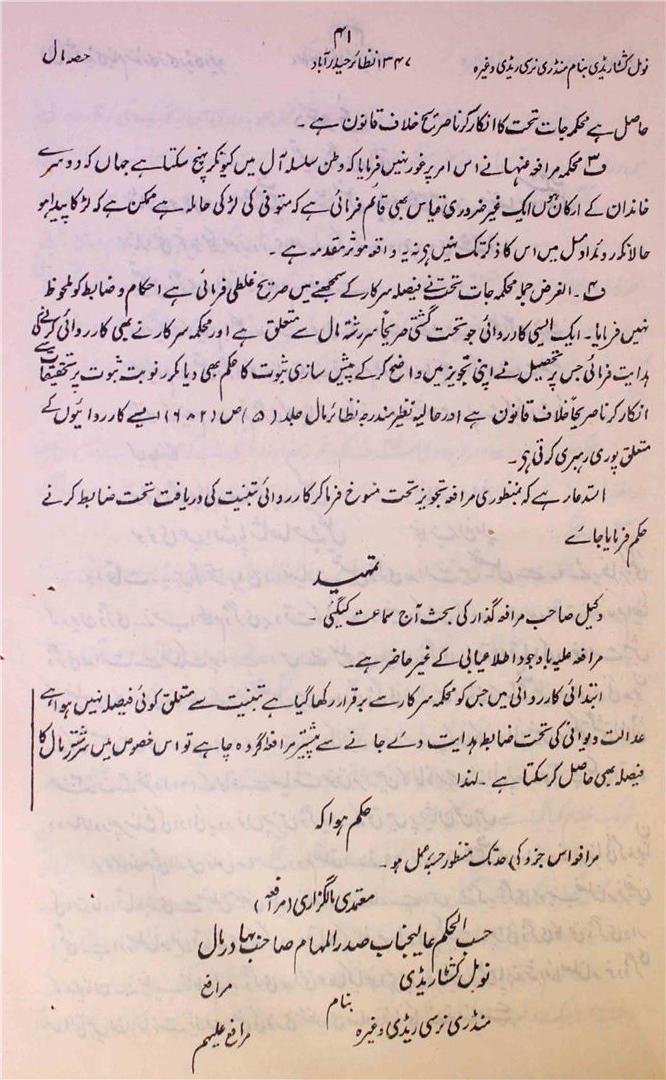 ۴۱
نول کشٹاریڈی بنام منڈری نرسی ریڈی وغیرہ ۱۳۴۷ نظائر حیدرآباد حصہ مال
حاصل ہے محکمہ جات تحت کا انکار کرنا صریح خلاف قانون ہے ۔
ف۳ محکمہ مرافعہ عنہا نے اس امر پر غور نہیں فرمایا کہ وطن سلسلہ آل میں کیونکر پہنچ سکتا ہے جہاں کہ دوسرے
خاندان کے ارکان ہوں ایک غیر ضروری قیاس بھی قائم فرمائی ہے کہ متوفی کی لڑکی حاملہ ہے ممکن ہے کہ لڑکا پیدا ہو
حالانکہ روئداد مسل میں اس کا ذکر تک نہیں ہے نہ یہ واقعہ موثر مقدمہ ہے ۔
ف۴ ۔ الغرض جملہ محکمہ جات تحت نے فیصلہ سرکار کے سمجھنے میں صریح غلطی فرمائی ہے احکام و ضابطہ کو ملحوظ
نہیں فرمایا ۔ ایک ایسی کارروائی جو تحت گشتی صریحاً سررشتہ مال سے متعلق ہے اور محکمہ سرکار نے بھی کارروائی کرنے کی
ہدایت فرمائی جس پر تحصیل نے اپنی تجویز میں واضح کر کے پیش سازی ثبوت کا حکم بھی دیا مگر نوبت ثبوت پر تحقیقات سے
انکار کرنا صریحاً خلاف قانون ہے اور حالیہ نظیر مندرجہ نظائر مال جلد (۵) ص (۶۸۲) ایسے کارروائیوں کے
متعلق پوری رہبری کرتی ہے ۔
استدعا ہے کہ بمنظوری مرافعہ تجویز تحت منسوخ فرما کر کارروائی تبنیت کی دریافت تحت ضابطہ کرنے
حکم فرمایا جائے
تمہید
وکیل صاحب مرافعہ گذار کی بحث آج سماعت کی گئی ۔
مرافعہ علیہ باوجود اطلاعیابی کے غیر حاضر ہے ۔
ابتدائی کارروائی میں جس کو محکمہ سرکار سے برقرار رکھا گیا ہے تبنیت سے متعلق کوئی فیصلہ نہیں ہوا ہے
عدالت دیوانی کی تحت ضابطہ ہدایت دے جانے سے پیشتر مرافعہ چاہے تو اس خصوص میں سررشتہ مال کا
فیصلہ بھی حاصل کر سکتا ہے ۔ لہذا
حکم ہوا کہ
مرافعہ اس جزو کی حد تک منظور حسبہ عمل ہو ۔
معتمدی مالگزاری (مرافعہ)
حسب الحکم عالیجناب صدر المہام صاحب بہادر مال
نول کشٹاریڈی مرافع
بنام
منڈری نرسی ریڈی وغیرہ مرافع علیہم